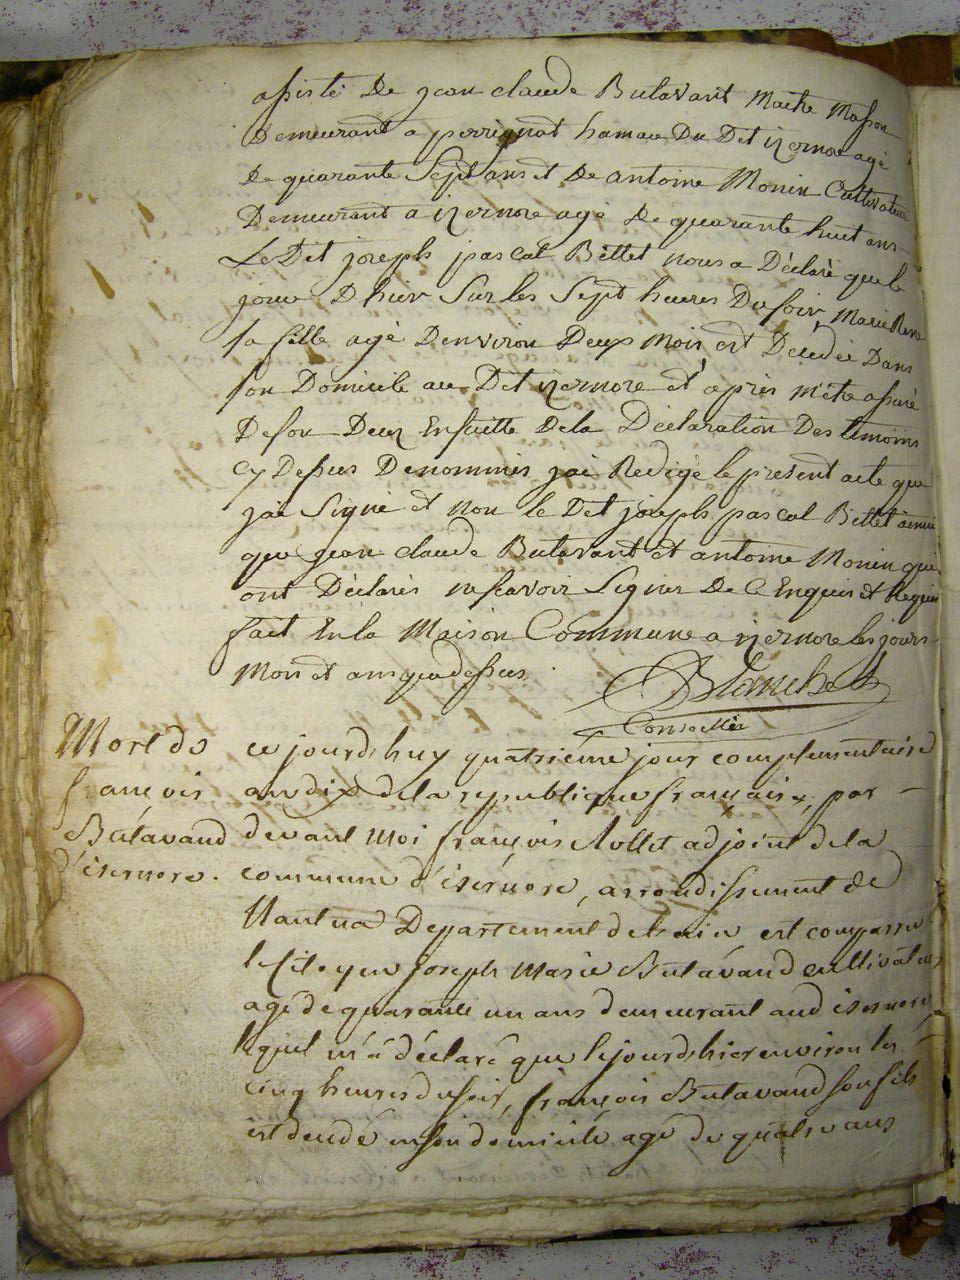 asisté De jean claude Butavant Maitre Masson
Demeurant a perrignat hamau Du Dit izernore agé
De quarante Sept ans et De antoine Monin Cultivateur
Demeurant a izernore agé De quarante huit ans
Le Dit joseph pascal Bittet nous a Déclaré que le
jour D hier Sur les Sept heures Du soir, Marie
sa fille agé Denviron Deux Mois est Décédée Dans
son Domicile au Dit izernore et apres m'être assuré
De son Deces Ensuitte De la Déclaration Des temoins
cy Dessus Denommés jai Redigé le present acte que
jai Signé et non le Dit joseph pascal Bittet ainsi
que jean claude Butavant et antoine Monin qui
ont Déclarés ne scavoir Signer De ce Enquis et Requis
fait En la Maison Commune a izernore les jours
Mois et ans que dessus
Blanchet
Conseiller
Mort de
françois
Butavand
d'isernore.
ce jourdshuy quatrième jour complementaire
an dix de la republique françaice, par
devant Moi françois Rollet adjoint de la
commune d'isernore, arrondissement de
Nantua Departement de l'ain est comparru
le citoyen joseph Marie Butavand cultivateur
agé de quarante un ans demeurant aud isernore
lequel m'a déclaré que le jourdshier environ les
cinq heures du soir, françois Butavand son fils
est decedé en son domicile agé de quatre ans